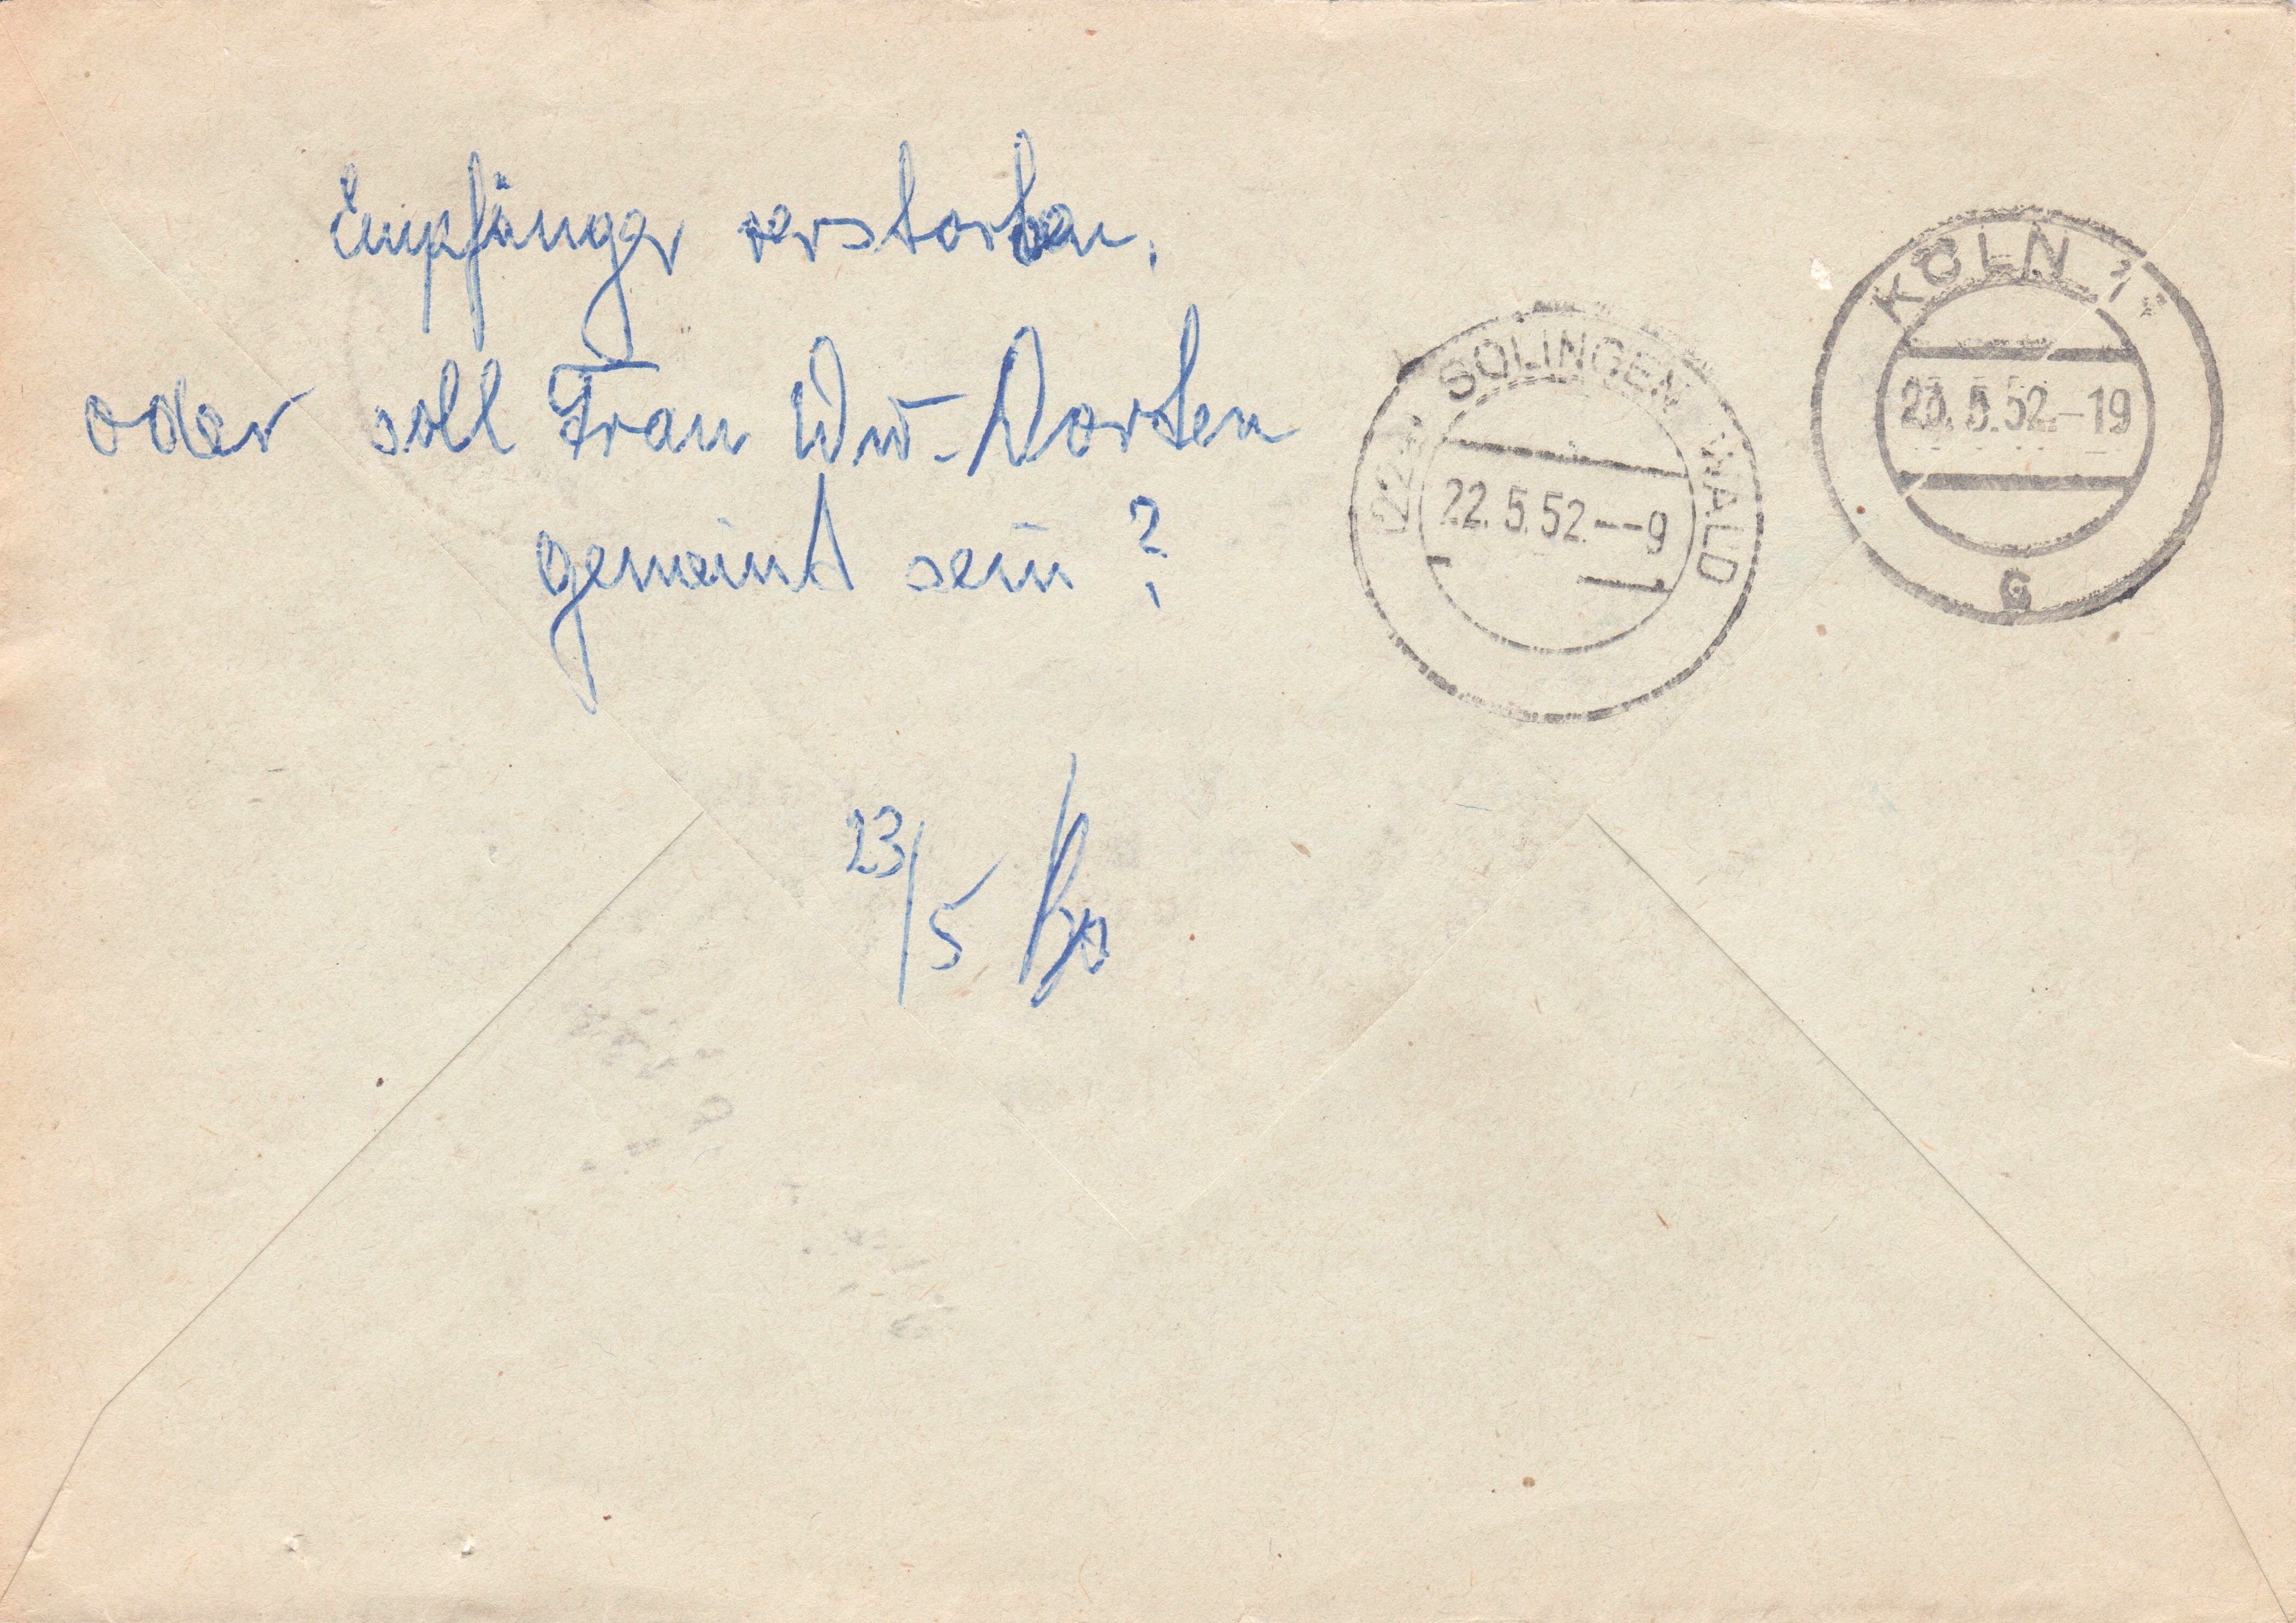 Empfänger verstorben.
oder soll Frau Ww. Dorten
gemeint sein?
23/5
SOLINGEN WALD
22.5.52.--9
KÖLN 1
5.52.-19
G